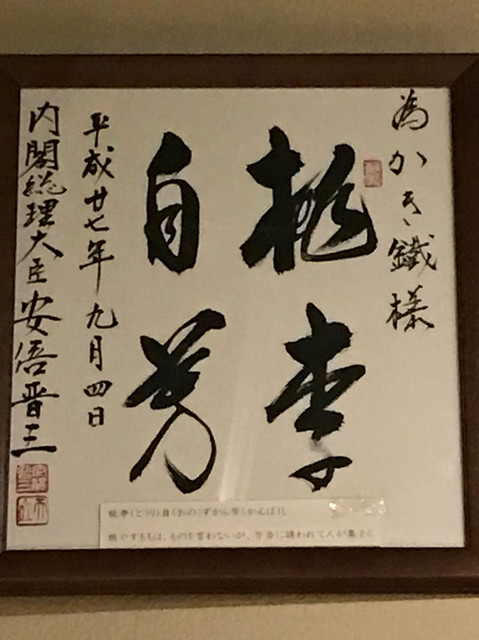 為かき鐵様
桃李
自芳
平成廿七年九月四日
内閣総理大臣安倍晋三
桃李(とうり)自(おの)ずから芳(かんば)し
桃やすももは、ものを言わないが、芳香に誘われて人が集まる